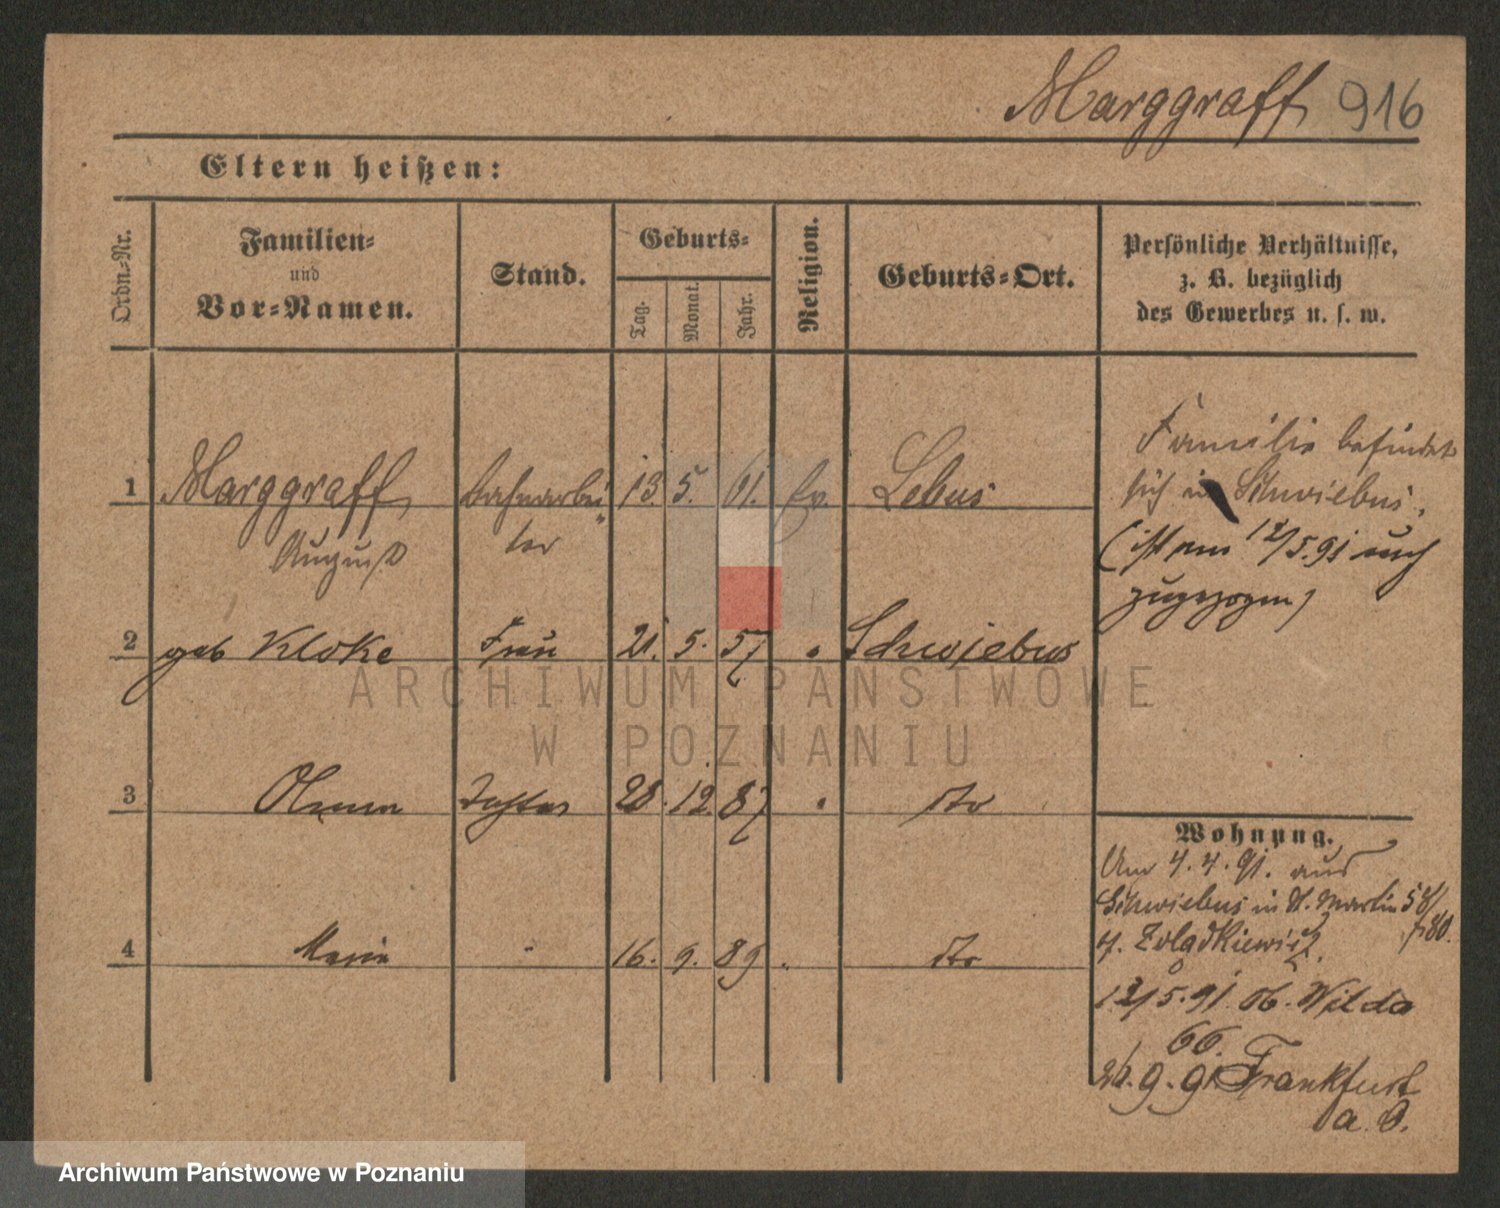 Marggraff 916
Eltern heißen:
Ordn.-Nr.
Familien-
und
Vor-Namen.
Stand.
Geburts-
Tag.
Monat.
Jahr.
Religion.
Geburts-Ort.
Persönliche Verhältnisse,
z. B. bezüglich
des Gewerbes u. s. w.
1 Marggraff Bahnarbei 13. 5. 61. Ev. Lebus
August ter
Familie befindet
sich in Schwiebus.
(ist am 12/5.91 auch
zugezogen)
2 geb Kloke Frau 21. 5. 57 " Schwiebus
3 Tochter 28. 12. 87 " dto
4 Marie " 16. 9. 89 " dto
Wohnung.
Am 4.4.91. aus
Schwiebus in St. Martin 58/
b. Zolądkiewicz.
12/5.91. Ob. Wilda
66.
9.91 Frankfurt
a. O.
ARCHIWUM PAŃSTWOWE
W POZNANIU
Archiwum Państwowe w Poznaniu